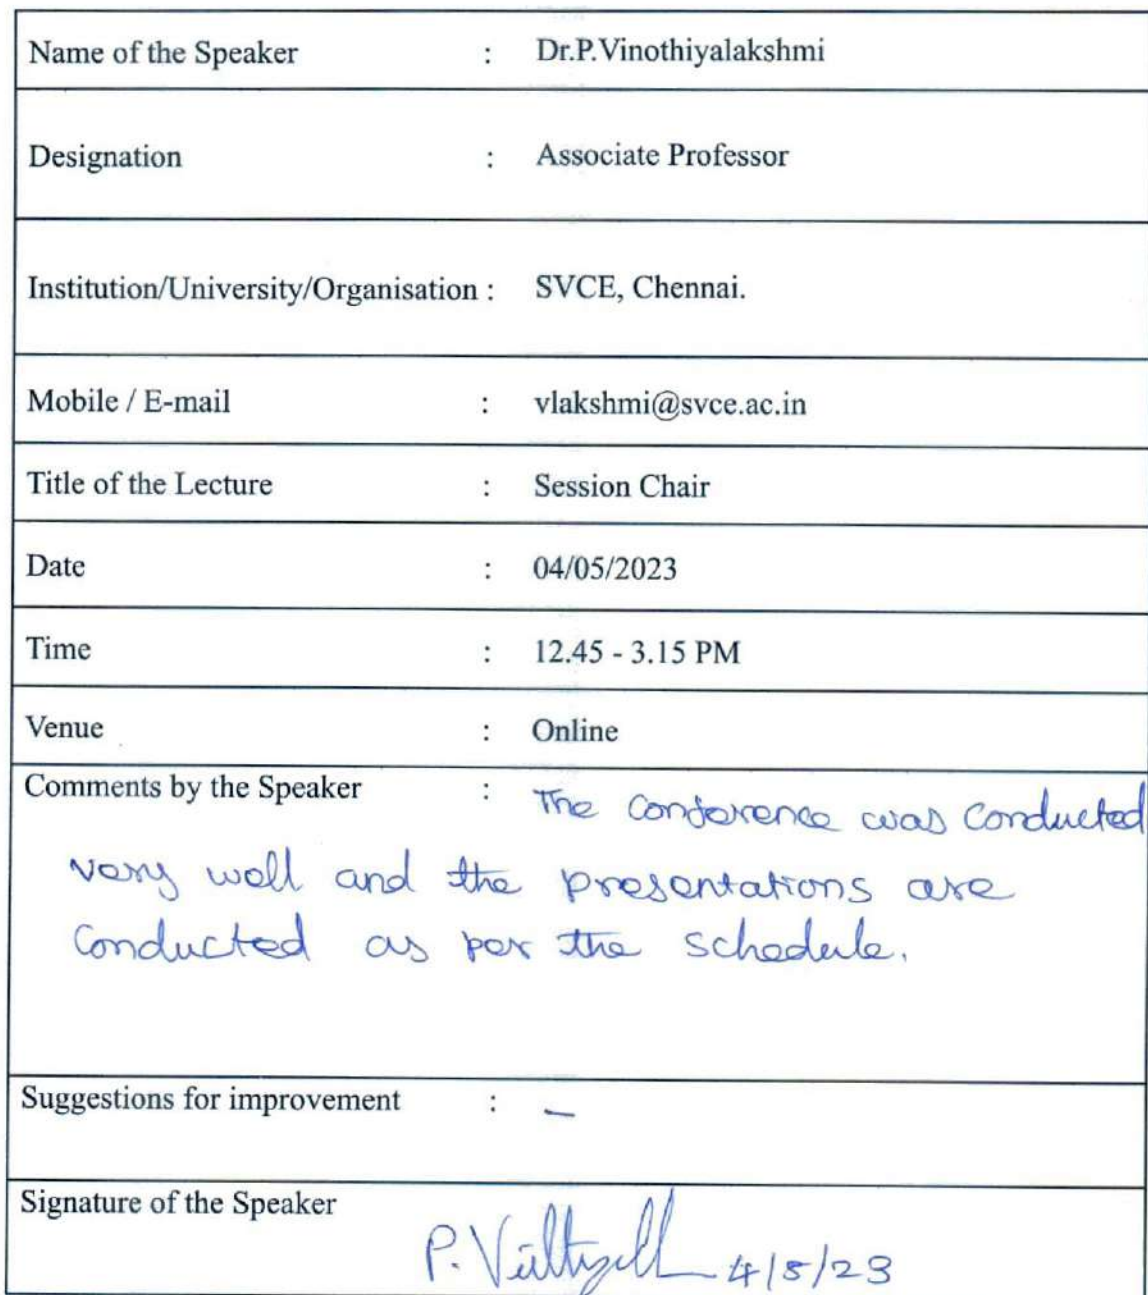 Name of the Speaker : Dr.P.Vinothiyalakshmi
Designation : Associate Professor
Institution/University/Organisation : SVCE, Chennai.
Mobile / E-mail : vlakshmi@svce.ac.in
Title of the Lecture : Session Chair
Date : 04/05/2023
Time : 12.45 - 3.15 PM
Venue : Online
Comments by the Speaker : The conference was conducted
very well and the presentations are
conducted as per the schedule.
Suggestions for improvement : -
Signature of the Speaker
P. 4/5/23